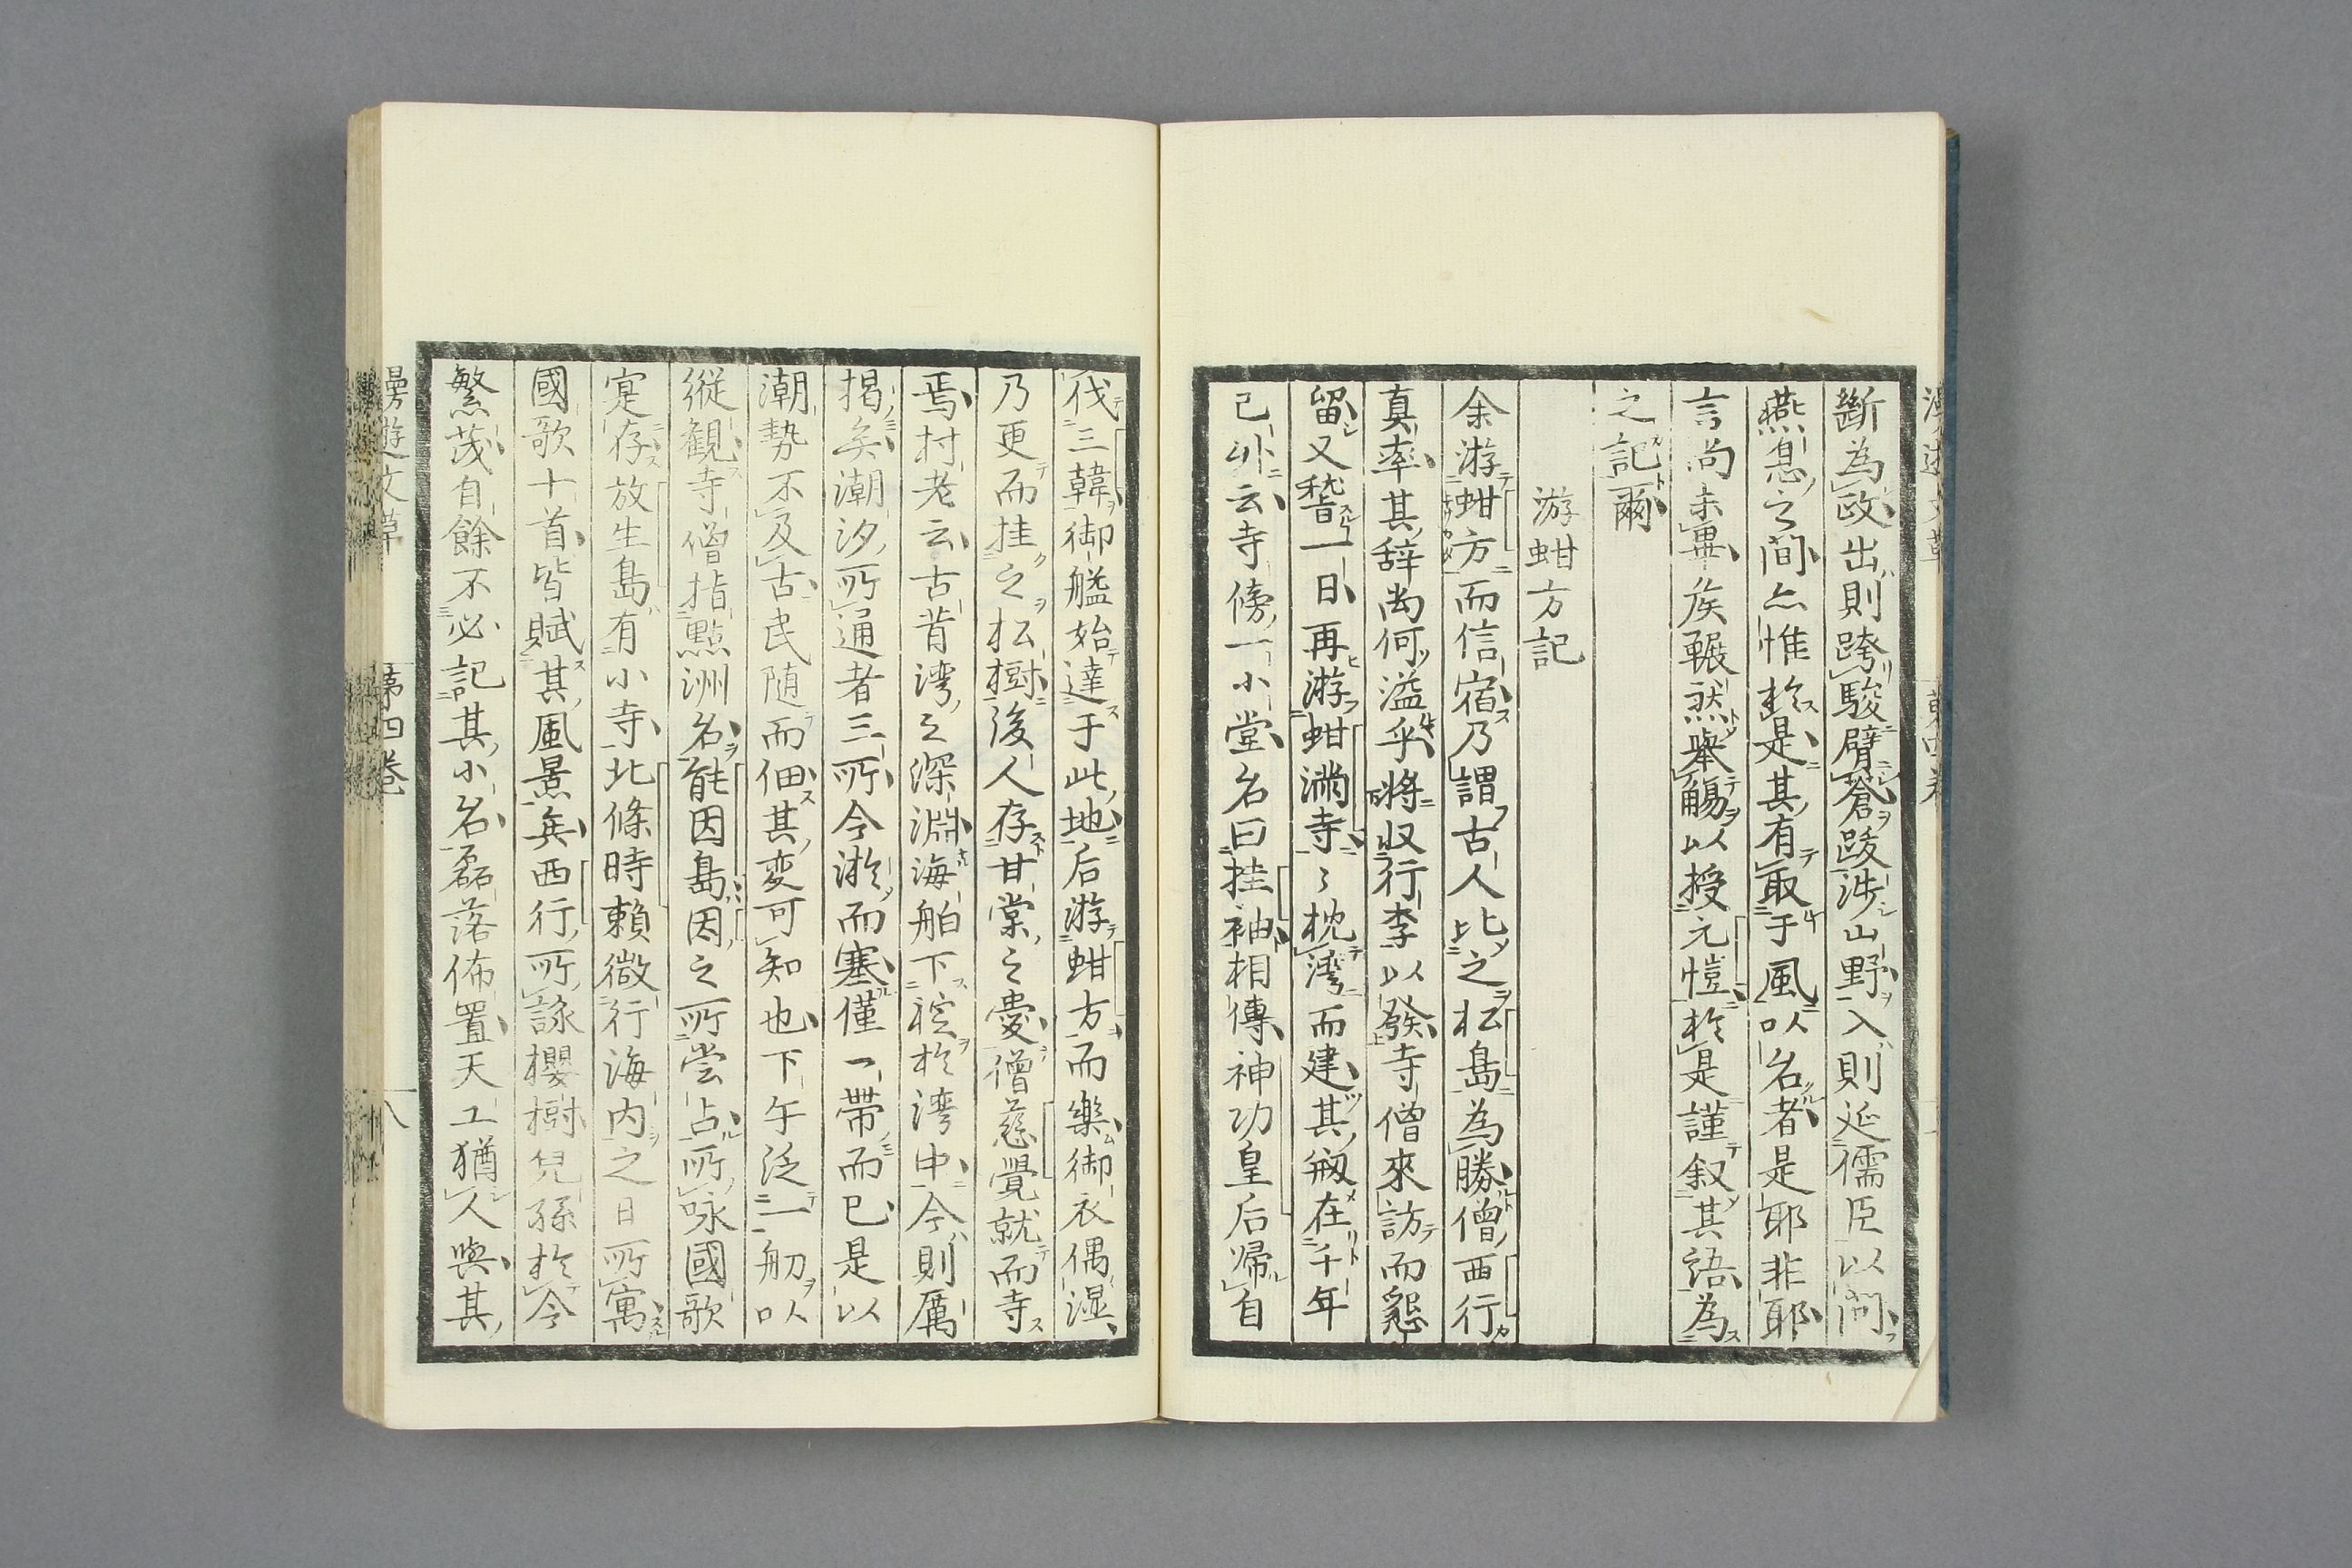 斷為政出則跨駿臂蒼跋涉山野入則延儒臣以問
燕息之間亦惟於是其有取于風以名者是耶非耶
言尚未畢侯冁然舉觴以授元愷於是謹叙其語為
之記爾
游蚶方記
余游蚶方而信宿乃謂古人比之松島為勝僧西行
真率其辞尚何溢乎將収行李以發寺僧來訪而懇
留又稽一日再游蚶滿寺々枕湾而建其剏在千年
已外云寺傍一小堂名曰挂袖相傳神功皇后帰自
伐三韓御艦始達于此地后游蚶方而樂御衣偶湿
乃更而挂之松樹後人存甘棠之憂僧慈覺就而寺
焉村老云古昔湾之深淵海舶下碇於湾中今則厲
揭矣潮汐所通者三所今淤而塞僅一帶而已是以
潮勢不及古民随而佃其変可知也下午泛一舠以
縦観寺僧指點洲名能因島因之所嘗占所咏國歌
寔存放生島有小寺北條時頼微行海内之日所寓
國歌十首皆賦其風景矣西行所詠櫻樹兒孫於今
繁茂自餘不必記其小名磊落佈置天工猶人與其
漫遊文草 第四巻 八